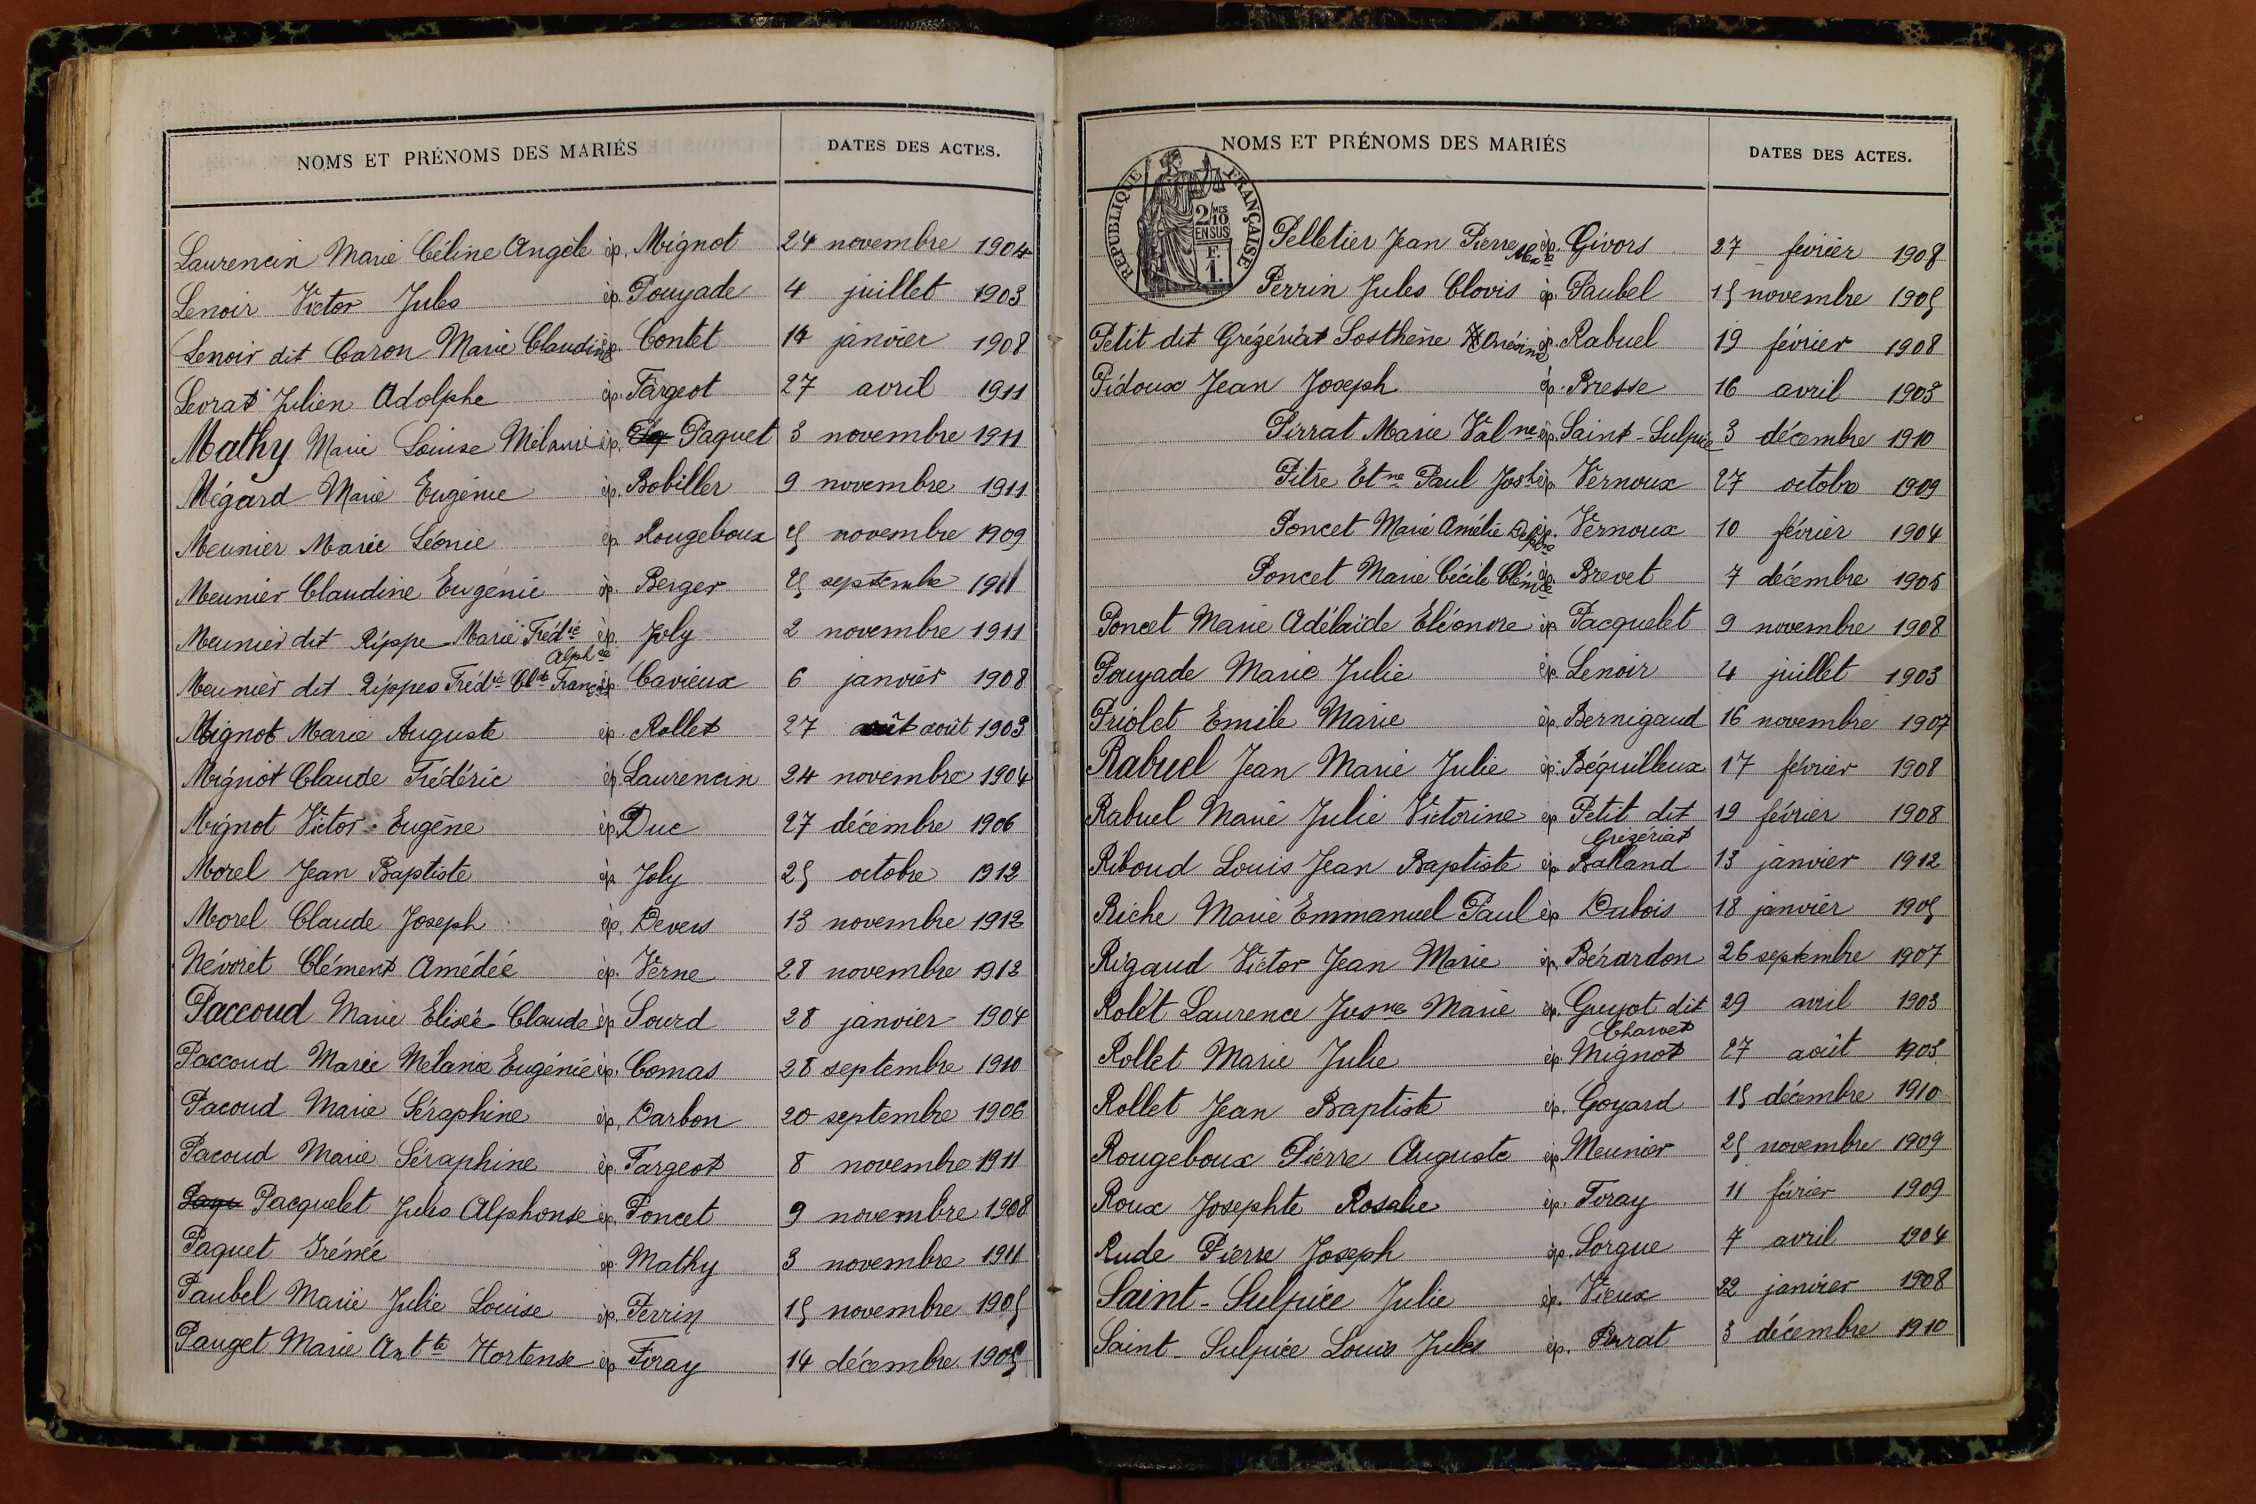 NOMS ET PRÉNOMS DES MARIÉS DATES DES ACTES.
Laurencin Marie Céline Angèle ép. Mignot 24 novembre 1904
Lenoir Victor Jules ép. Pouyade 4 juillet 1903
Lenoir dit Caron Marie Claudine ép. Contet 14 janvier 1908
Levrat Julien Adolphe ép. Fargeot 27 avril 1911
Mathy Marie Louise Mélanie ép. Paquet 3 novembre 1911
Mégard Marie Eugénie ép. Bobiller 9 novembre 1911
Meunier Marie Léonie ép. Rougeboux 25 novembre 1909
Meunier Claudine Eugénie ép. Berger 25 septembre 1911
Meunier dit Rippe Marie Fréd.ic ép. Joly 2 novembre 1911
Alph.se
Meunier dit Rippes Fréd.ic Cl.de François ép. Cavieux 6 janvier 1908
Mignot Marie Auguste ép. Rollet 27 août 1903
Mignot Claude Frédéric ép. Laurencin 24 novembre 1904
Mignot Victor Eugène ép. Duc 27 décembre 1906
Morel Jean Baptiste ép. Joly 25 octobre 1912
Morel Claude Joseph ép. Devers 13 novembre 1912
Névoret Clément Amédéé ép. Verne 28 novembre 1912
Paccoud Marie Elisée Claude ép. Sourd 28 janvier 1904
Paccoud Marie Mélanie Eugénie ép. Comas 28 septembre 1910
Pacoud Marie Séraphine ép. Darbon 20 septembre 1906
Pacoud Marie Séraphine ép. Fargeot 8 novembre 1911
Pacquelet Jules Alphonse ép. Poncet 9 novembre 1908
Paquet Irénée ép. Mathy 3 novembre 1911
Paubel Marie Julie Louise ép. Perrin 15 novembre 1905
Pauget Marie Ant.te Hortense ép. Firay 14 décembre 1905
NOMS ET PRÉNOMS DES MARIÉS DATES DES ACTES.
RÉPUBLIQUE FRANÇAISE
2/10 MES
EN SUS
F.
1.
Pelletier Jean Pierre Alex.is ép. Givors 27 février 1908
Perrin Jules Clovis ép. Paubel 15 novembre 1905
Petit dit Grézériat Sosthène Onésime ép. Rabuel 19 février 1908
Pidoux Jean Joseph ép. Bresse 16 avril 1903
Pirrat Marie Val.ne ép. Saint-Sulpice 3 décembre 1910
Pitre Et.ne Paul Jos.h ép. Vernoux 27 octobre 1909
Poncet Marie Amélie Delph.ne ép. Vernoux 10 février 1904
Poncet Marie Cécile Clém.ce ép. Brevet 7 décembre 1905
Poncet Marie Adélaïde Eléonore ép. Pacquelet 9 novembre 1908
Pouyade Marie Julie ép. Lenoir 4 juillet 1903
Priolet Emile Marie ép. Bernigaud 16 novembre 1907
Rabuel Jean Marie Julie ép. Béquilleux 17 février 1908
Rabuel Marie Julie Victorine ép. Petit dit 19 février 1908
Grézériat
Riboud Louis Jean Baptiste ép. Balland 13 janvier 1912
Riche Marie Emmanuel Paul ép. Dubois 18 janvier 1905
Rigaud Victor Jean Marie ép. Bérardon 26 septembre 1907
Rolet Laurence Jus.ne Marie ép. Guyot dit 29 avril 1903
Charvet
Rollet Marie Julie ép. Mignot 27 août 1903
Rollet Jean Baptiste ép. Goyard 15 décembre 1910
Rougeboux Pierre Auguste ép. Meunier 25 novembre 1909
Roux Josephte Rosalie ép. Firay 11 février 1909
Rude Pierre Joseph ép. Sorgue 7 avril 1904
Saint-Sulpice Julie ép. Vieux 22 janvier 1908
Saint-Sulpice Louis Jules ép. Pirrat 3 décembre 1910